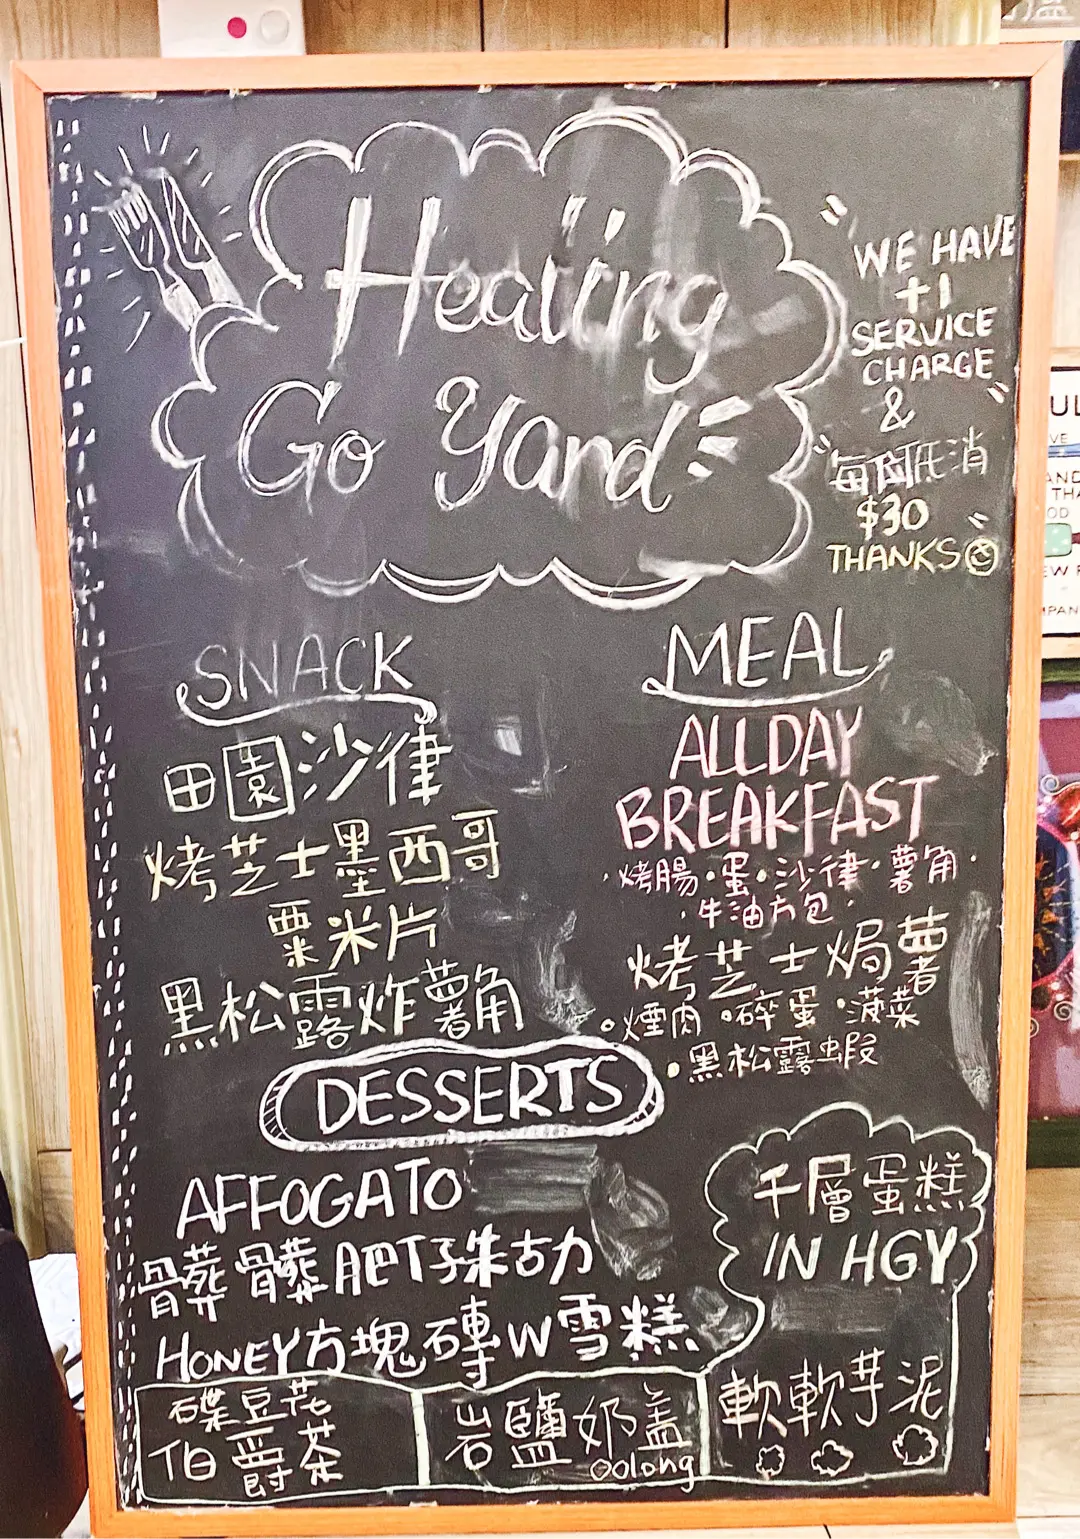 Healing
Go Yard
WE HAVE
+1
SERVICE
CHARGE
&
每位低消
$30
THANKS
SNACK
田園沙律
烤芝士墨西哥
粟米片
黑松露炸薯角
MEAL
ALLDAY
BREAKFAST
·烤腸·蛋·沙律·薯角·
·牛油方包·
烤芝士焗薯
·煙肉·碎蛋·菠菜
·黑松露蝦
DESSERTS
AFFOGATO
髒髒肥仔朱古力
HONEY方塊磚W雪糕
千層蛋糕
IN HGY
碟豆花
伯爵茶
岩鹽奶盖
oolong
軟軟芋泥